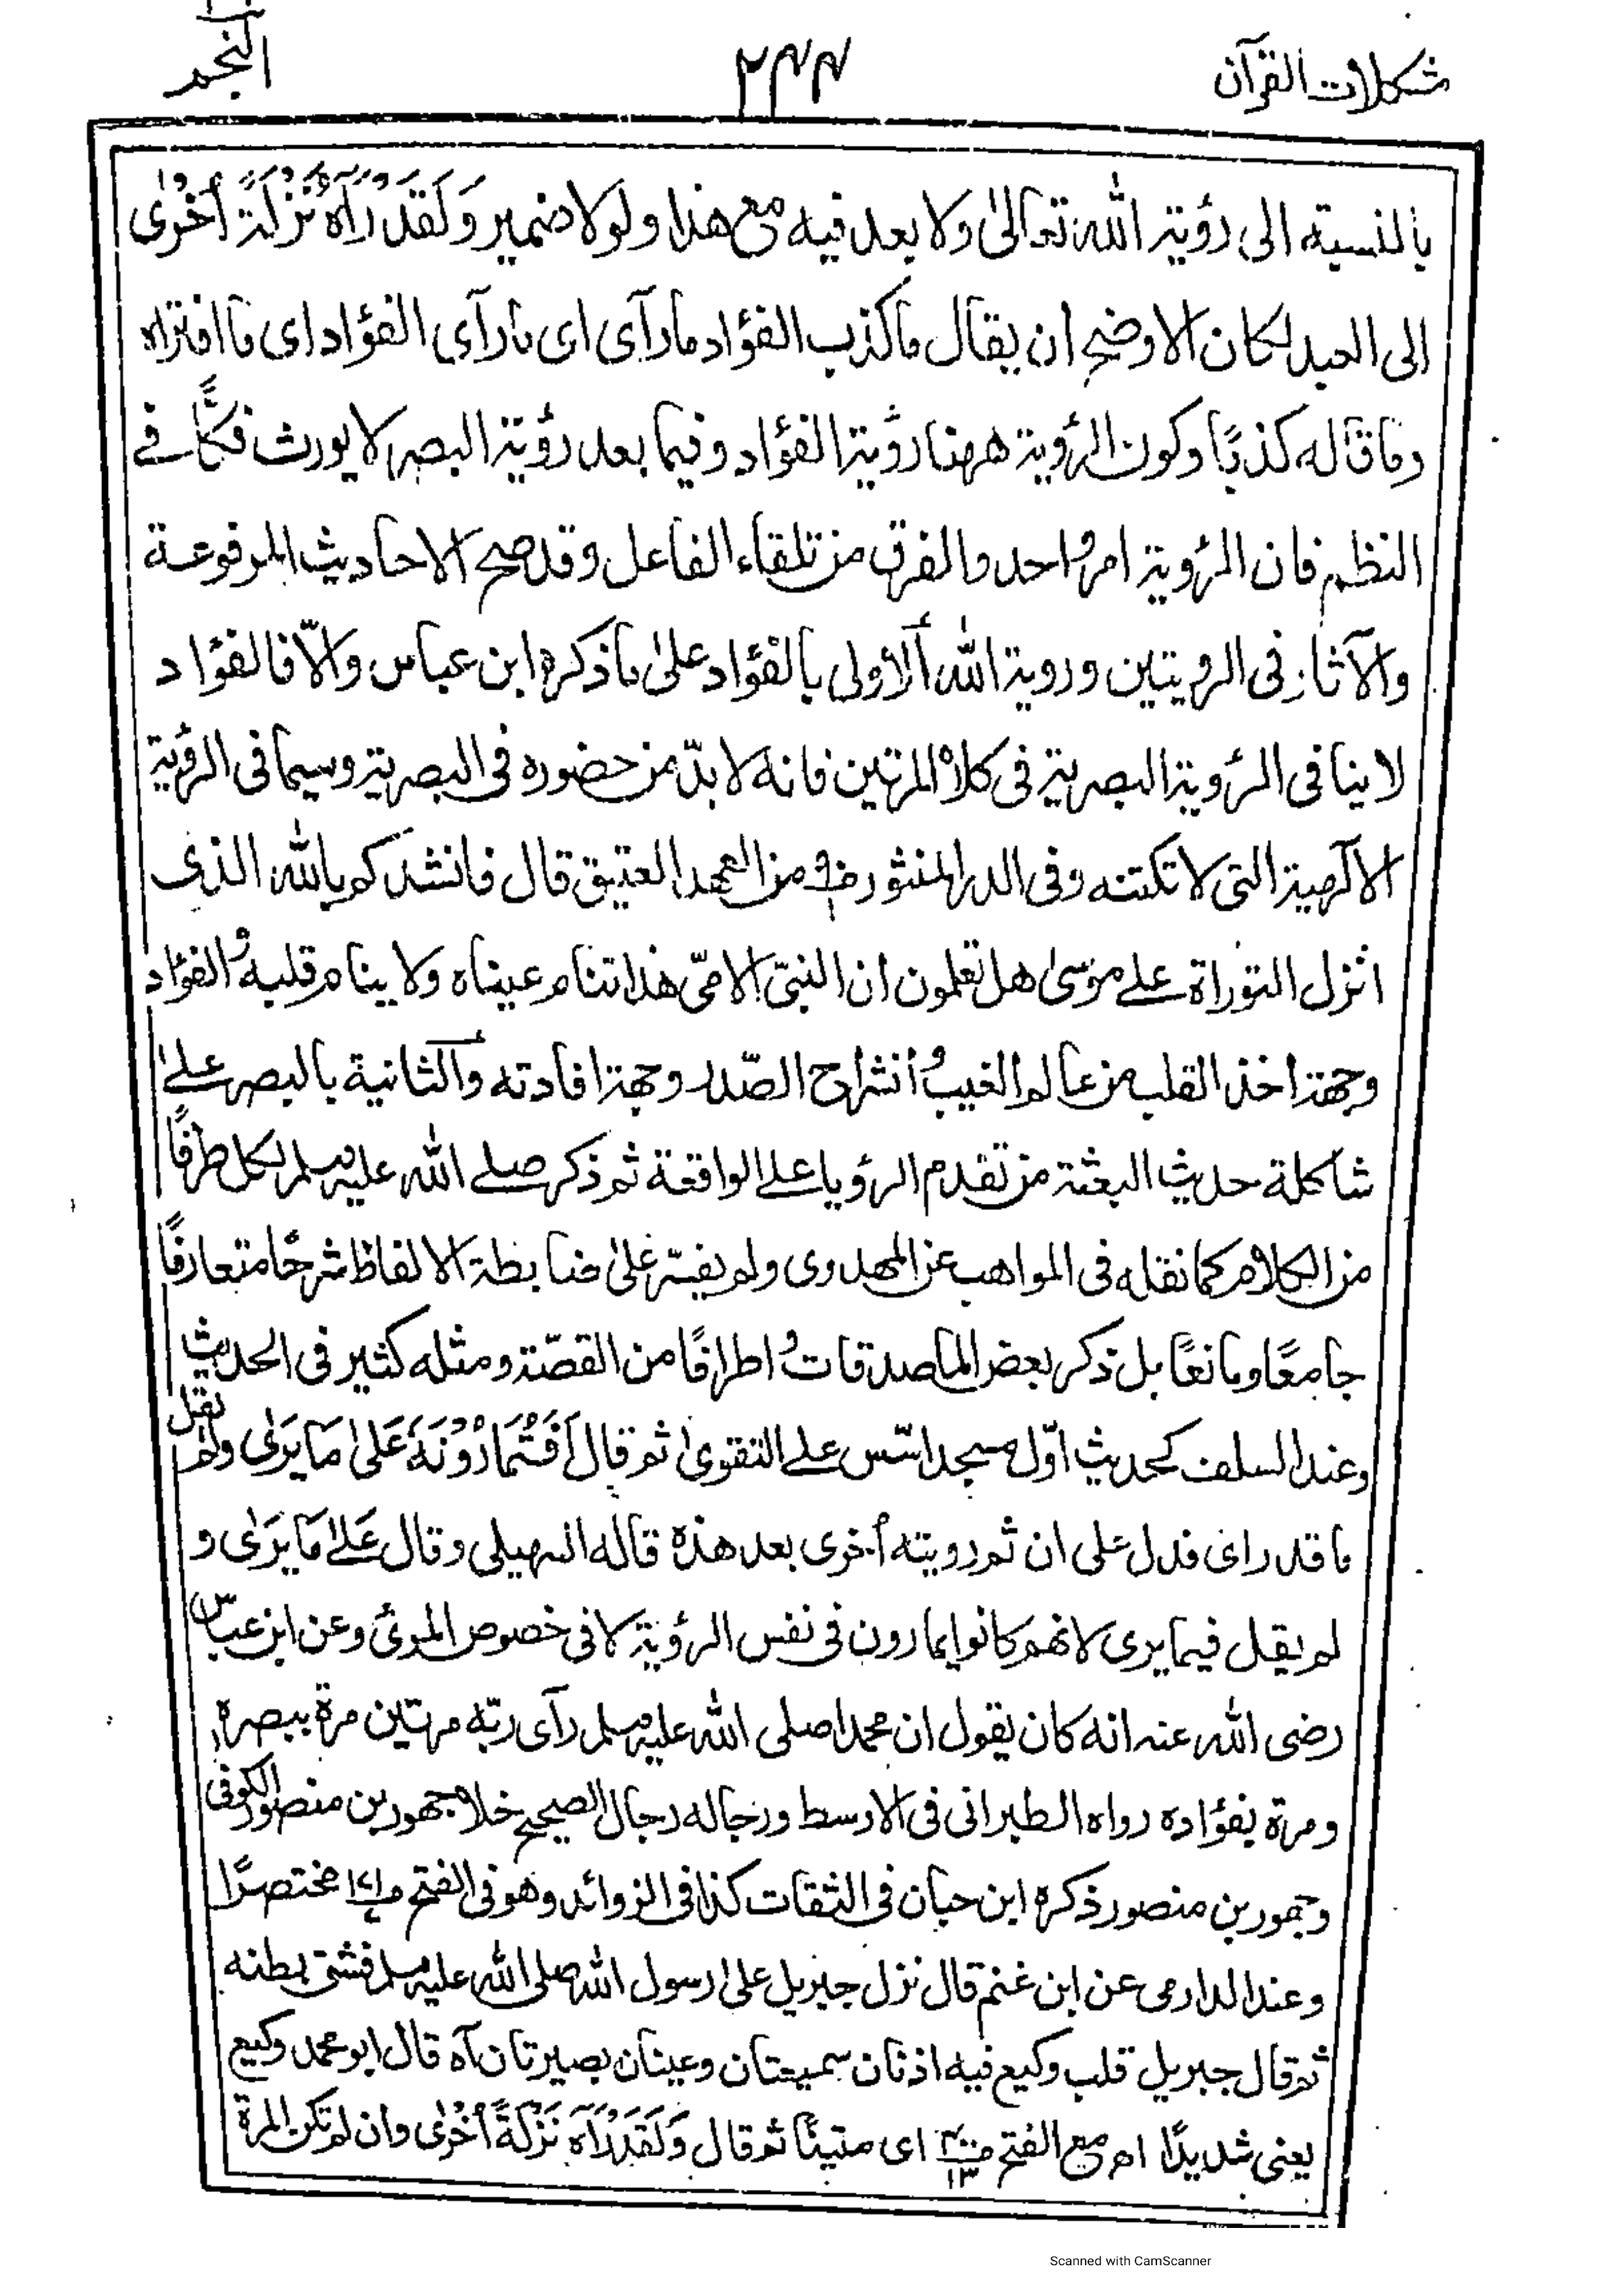 شكلات القرآن
٢٤٤
النجم
بالنسبة الى رؤية الله تعالىٰ ولا بعد فيه مع هذا ولولا ضمير وَلَقَدْ رَاٰهُ نَزْلَةً أُخْرٰى
الى العبد لكان الاوضح ان يقال ما كذب الفؤاد ما رآى اى ما رآى الفؤاد اى ما افتراه
وما قاله كذبًا وكون الرؤية ههنا رؤية الفؤاد وفيما بعد رؤية البصر لا يورث فكًّا فے
النظم فان الرؤية امر واحد والفرق من تلقاء الفاعل وقد صح الاحاديث المرفوعة
والآثار فى الرويتين وروية الله الاولى بالفؤاد علىٰ ما ذكره ابن عباس والّا فالفؤاد
لا ينافى الرؤية البصرية فى كلا المرتين فانه لا بدّ من حضوره فى البصرية وسيما فى الرؤية
الآلهية التى لا تكتنه وفى الدر المنثور من العهد العتيق قال فانشدكم بالله الذى
انزل التوراة علے موسىٰ هل تعلمون ان النبىّ الامىّ هذا تنام عيناه ولا ينام قلبه و الفؤاد
وجهة اخذ القلب من عالم الغيب و انشراح الصّدر وجهة افادته والثانية بالبصر علےٰ
شاكلة حديث البعثة من تقدم الرؤيا علے الواقعة ثم ذكر صلے الله عليه وسلم لكل طرفًا
من الكلام كما نقله فى المواهب عن المهدوى ولم يفسّر علىٰ ضابطة الالفاظ شرحًا متعارفًا
جامعًا ومانعًا بل ذكر بعض الماصدقات و اطرافًا من القصّة ومثله كثير فى الحديث
وعند السلف كحديث اوّل مسجد اسّس علے التقوىٰ ثم قال اَفَتُمَارُوْنَهٗ عَلىٰ مَا يَرٰى ولم يقل
ما قد راى فدل على ان ثم رويته أخرى بعد هذه قاله السهيلى وقال عَلےٰ مَا يَرٰى و
لم يقل فيما يرى لانهم كانوا يمارون فى نفس الرؤية لا فى خصوص المرئى وعن ابن عباس
رضى الله عنه انه كان يقول ان محمدا صلى الله عليه وسلم رآى ربّه مرتين مرة ببصره
ومرة بفؤاده رواه الطبرانى فى الاوسط ورجاله رجال الصحيح خلا جمهور بن منصور الكوفى
وجمهور بن منصور ذكره ابن حبان فى الثقات كذا فى الزوائد وهو فى الفتح مختصرًا
وعند الدارمى عن ابن غنم قال نزل جبريل علىٰ رسول الله صلى الله عليه وسلم فشق بطنه
ثم قال جبريل قلب وكيع فيه اذنان سميعتان وعينان بصيرتان آه قال ابو محمد وكيع
يعنى شديدًا اهـ مع الفتح اى متينًا ثم قال وَلَقَدْ رَاٰهُ نَزْلَةً أُخْرٰى وان لم تكن المرة
Scanned with CamScanner